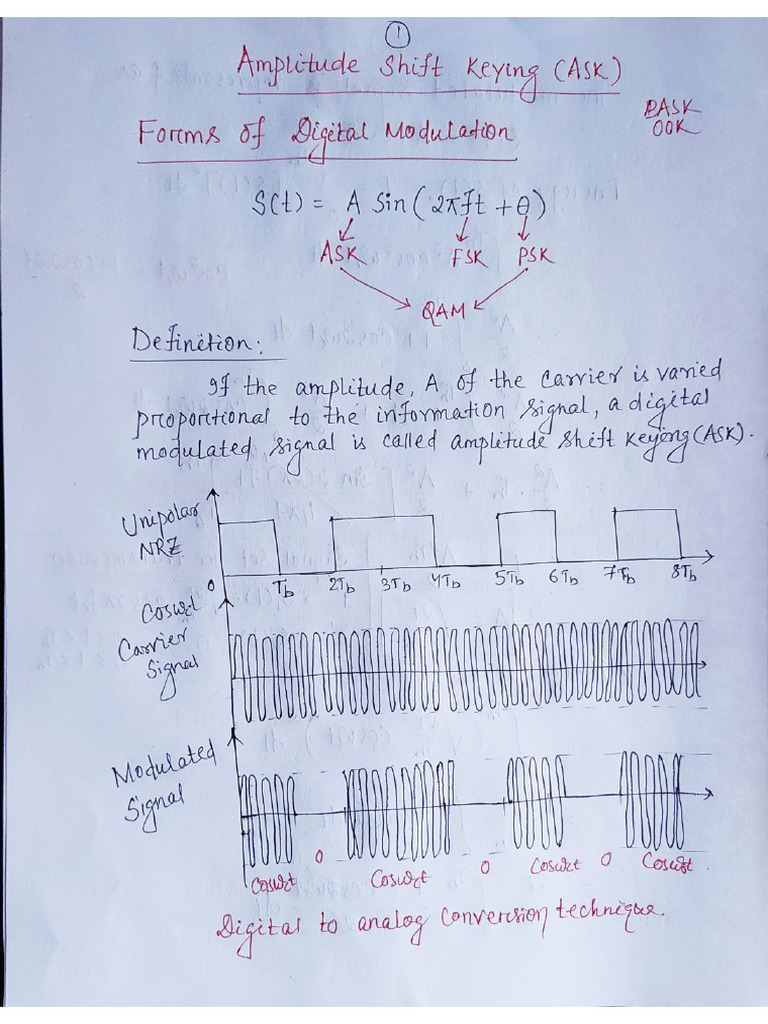 1
Amplitude Shift Keying (ASK)
BASK
OOK
Forms of Digital Modulation
S(t) = A Sin(2πft + θ)
ASK FSK PSK
QAM
Definition:
If the amplitude, A of the carrier is varied
proportional to the information signal, a digital
modulated signal is called amplitude shift keying (ASK).
Unipolar
NRZ
0 Tb 2Tb 3Tb 4Tb 5Tb 6Tb 7Tb 8Tb
Cosωct
Carrier
Signal
Modulated
Signal
Cosωct 0 Cosωct 0 Cosωct 0 Cosωct
Digital to analog conversion technique.